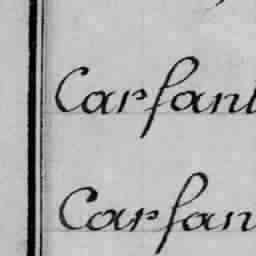 Carfant
Carfan